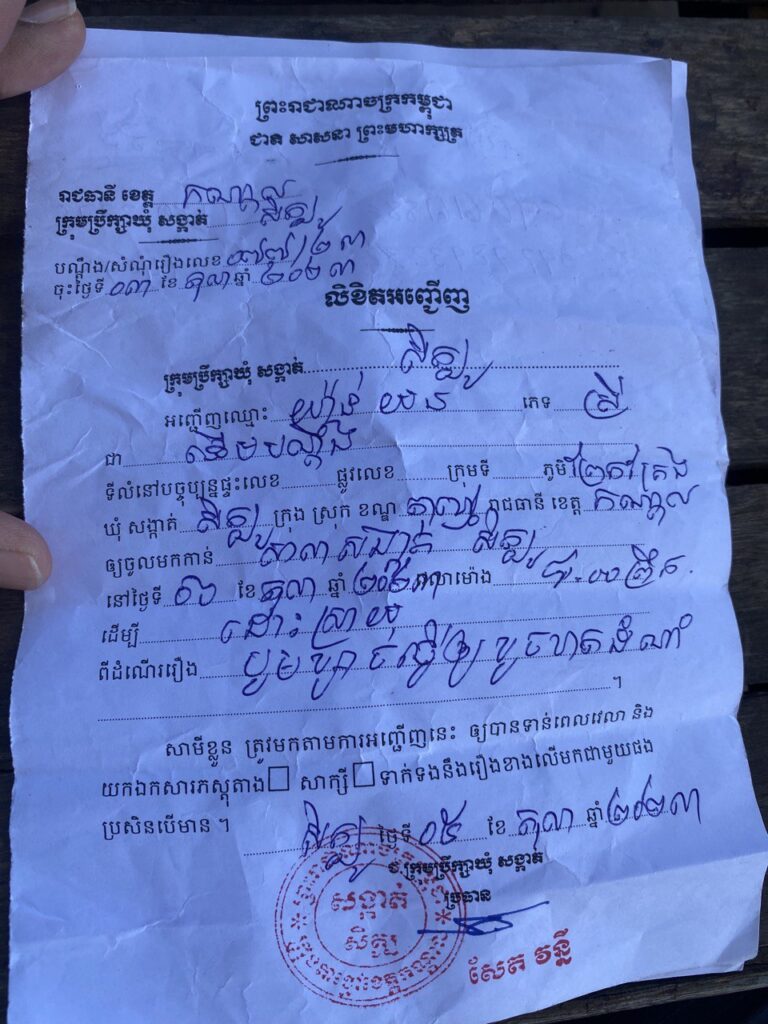 ព្រះរាជាណាចក្រកម្ពុជា
ជាតិ សាសនា ព្រះមហាក្សត្រ
រាជធានី ខេត្ត កណ្តាល
ក្រុមប្រឹក្សាឃុំ សង្កាត់ សិត្បូ
បណ្តឹង/សំណុំរឿងលេខ
ចុះថ្ងៃទី ០៣ ខែ តុលា ឆ្នាំ ២០២៣
លិខិតអញ្ជើញ
ក្រុមប្រឹក្សាឃុំ សង្កាត់ សិត្បូ
អញ្ជើញឈ្មោះ ភេទ ស្រី
ជា ដើមបណ្តឹង
ទីលំនៅបច្ចុប្បន្នផ្ទះលេខ ផ្លូវលេខ ក្រុមទី ភូមិ
ឃុំ សង្កាត់ សិត្បូ ក្រុង ស្រុក ខណ្ឌ រាជធានី ខេត្ត កណ្តាល
ឲ្យចូលមកកាន់ សាលាសង្កាត់ សិត្បូ
នៅថ្ងៃទី ខែ តុលា ឆ្នាំ ២០២៣ វេលាម៉ោង
ដើម្បី ដោះស្រាយ
ពីដំណើររឿង ធ្វើឲ្យខូចខាតដំណាំ
។
សាមីខ្លួន ត្រូវមកតាមការអញ្ជើញនេះ ឲ្យបានទាន់ពេលវេលា និង
យកឯកសារភស្តុតាង សាក្សី ទាក់ទងនឹងរឿងខាងលើមកជាមួយផង
ប្រសិនបើមាន ។
សិត្បូ ថ្ងៃទី ០៥ ខែ តុលា ឆ្នាំ ២០២៣
ជ.ក្រុមប្រឹក្សាឃុំ សង្កាត់
ប្រធាន
សង្កាត់
សិត្បូ
សែត វន្នី